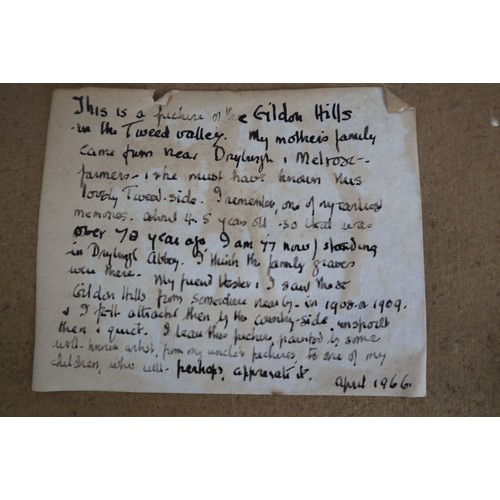 This is a picture of the Eildon Hills
in the Tweed valley. My mother's family
came from near Dryburgh & Melrose -
farmers - & she must have known this
lovely Tweed-side. I remember, one of my earliest
memories. about 4.5 years old. so that was
over 70 year ago, I am 77 now) standing
in Dryburgh Abbey. I think the family graves
were there. My friend Hester & I saw these
Eildon Hills from somewhere nearby - in 1908 or 1909.
& I felt attracted then by the country-side, unspoilt
then & quiet. I leave this picture, painted by some
well-known artist, from my uncle's pictures, to one of my
children, who will - perhaps, appreciate it.
April 1966.